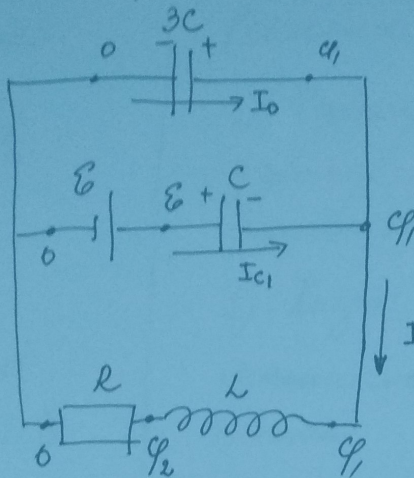 3C
0 - + φ₁
I₀
ℰ ℰ + C -
0 φ₁
I_C₁
I
R L
0 φ₂ φ₁